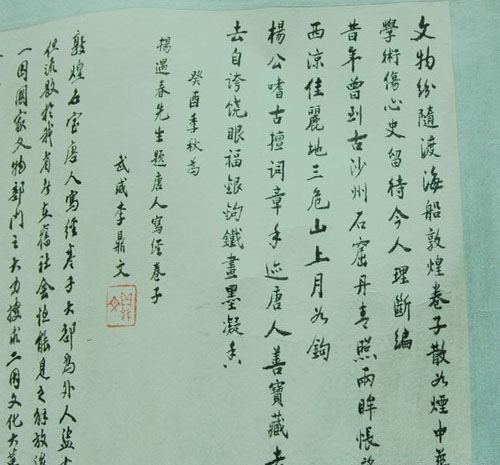 文物紛隨渡海船敦煌卷子散如煙中華
學術傷心史留待今人理斷編
昔年曾到古沙州石窟丹青照兩眸悵望
西涼佳麗地三危山上月如鉤
楊公嗜古擅詞章手迹唐人善寶藏老
去自誇饒眼福銀鉤鐵畫墨凝香
癸酉季秋為
楊遇春先生題唐人寫經卷子
武威李鼎文
敦煌石室唐人寫經卷子大部為外人盜
但流散於我省者在舊社會恒能見之解放後
一因國家文物部門之大力搜求二因文化大革